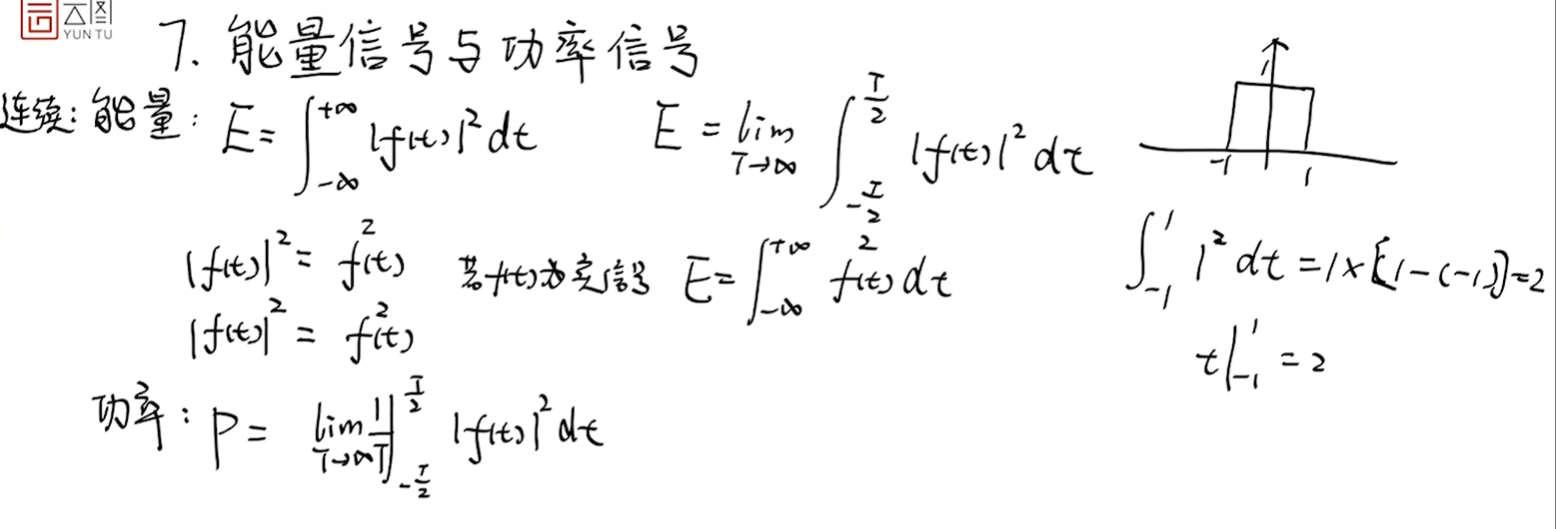 云图
YUN TU
7. 能量信号与功率信号
连续: 能量: E = ∫_{-∞}^{+∞} |f(t)|² dt    E = lim_{T→∞} ∫_{-T/2}^{T/2} |f(t)|² dt
|f(t)|² = f²(t)    若f(t)为实信号    E = ∫_{-∞}^{+∞} f²(t) dt
|f(t)|² = f²(t)
功率: P = lim_{T→∞} 1/T ∫_{-T/2}^{T/2} |f(t)|² dt
1
-1    1
∫_{-1}^{1} 1² dt = 1×[1-(-1)] = 2
t|_{-1}^{1} = 2